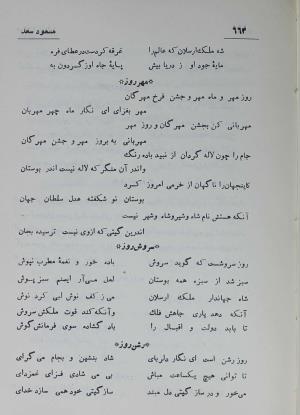 ۶۶۴ مسعود سعد
شاه ملک ارسلان که عالم را غرقه کردست در عطای فره
مایهٔ جود او ز دریا بیش پایهٔ جاه او ز گردون به
*مهر روز*
روز مهر و ماه مهر و جشن فرخ مهرگان
مهر بفزای ای نگار ماه چهر مهربان
مهربانی کن بجشن مهرگان و روز مهر
مهربانی به بروز مهر و جشن مهرگان
جام را چون لاله گردان از نبید باده رنگ
واندر آن منگر که لاله نیست اندر بوستان
کاینجهان را ناگهان از خرمی امروز کرد
بوستان نو شکفته عدل سلطان جهان
آنکه هستش نام شاه و شیر و شاه و شیر نیست
اندرین گیتی که ازوی نیست ترسیده بجان
*سروش روز*
روز سروشست که گوید سروش باده خور و نغمهٔ مطرب نیوش
سبز شد از سبزه همه بوستان لعل می آر ایصنم سبز پوش
شاه جهاندار ملک ارسلان می ز کف نوش لبی کرد نوش
آنکه دهد یاری جاهش فلک وآنکه کند قوت ملکش سروش
تا باید دولت و اقبال را باد گشاده سوی فرمانش گوش
*رشن روز*
روز رشن است ای نگار دلربای شاد بنشین و بجام می گرای
تا توانی هیچ یکساعت مباش بی می شادی فزای غمزدای
می خور و در گیتی دل مبند ساز گیتی خود همی سازد خدای